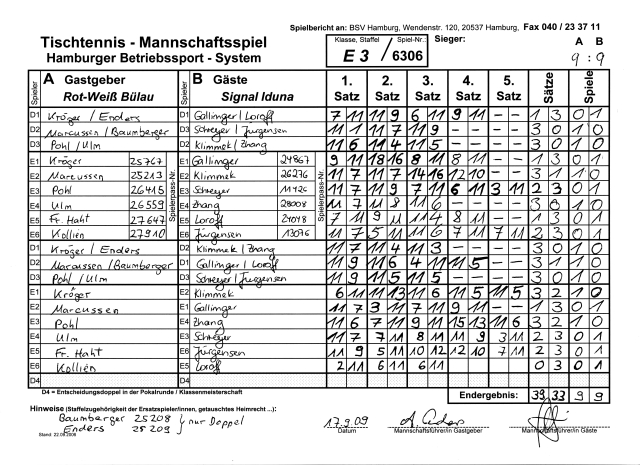 Spielbericht an: BSV Hamburg, Wendenstr. 120, 20537 Hamburg, Fax 040 / 23 37 11
Tischtennis - Mannschaftsspiel
Hamburger Betriebssport - System
Klasse, Staffel Spiel-Nr. Sieger: A B
E 3 / 6306 9 : 9
Spieler A Gastgeber Spieler B Gäste 1. 2. 3. 4. 5. Sätze Spiele
Rot-Weiß Bülau Signal Iduna Satz Satz Satz Satz Satz
D1 Kröger / Enders D1 Gallinger / Loroff 7 11 11 9 6 11 9 11 - - 1 3 0 1
D2 Marcussen / Baumberger D2 Schreyer / Jürgensen 11 1 11 7 11 9 - - - - 3 0 1 0
D3 Pohl / Ulm D3 Klimmek / Zhang 11 6 11 4 11 5 - - - - 3 0 1 0
E1 Kröger 25767 E1 Gallinger 24867 9 11 18 16 8 11 8 11 - - 1 3 0 1
E2 Marcussen 25213 E2 Klimmek 26276 11 7 11 7 14 16 12 10 - - 3 1 1 0
E3 Pohl 26415 E3 Schreyer 11426 11 7 11 9 7 11 6 11 3 11 2 3 0 1
E4 Ulm 26559 E4 Zhang 28008 11 7 11 8 11 6 - - - - 3 0 1 0
E5 Fr. Haht 27647 E5 Loroff 24048 7 11 9 11 11 4 8 11 - - 1 3 0 1
E6 Kollien 27910 E6 Jürgensen 13096 11 7 5 11 11 6 7 11 7 11 2 3 0 1
Spielerpass-Nr. Spielerpass-Nr.
D1 Kröger / Enders D2 Klimmek / Zhang 11 7 11 4 11 3 - - - - 3 0 1 0
D2 Marcussen / Baumberger D1 Gallinger / Loroff 11 9 11 6 4 11 11 5 - - 3 1 1 0
D3 Pohl / Ulm D3 Schreyer / Jürgensen 11 9 11 5 11 5 - - - - 3 0 1 0
E1 Kröger E2 Klimmek 6 11 11 13 11 6 11 5 11 5 3 2 1 0
E2 Marcussen E1 Gallinger 11 7 3 11 7 11 9 11 - - 1 3 0 1
E3 Pohl E4 Zhang 11 6 7 11 9 11 15 13 11 6 3 2 1 0
E4 Ulm E3 Schreyer 11 7 7 11 8 11 11 9 3 11 2 3 0 1
E5 Fr. Haht E6 Jürgensen 11 9 5 11 10 12 12 10 7 11 2 3 0 1
E6 Kollien E5 Loroff 2 11 6 11 6 11 0 3 0 1
D4 D4
D4 = Entscheidungsdoppel in der Pokalrunde / Klassenmeisterschaft Endergebnis: 39 33 9 9
Hinweise (Staffelzugehörigkeit der Ersatzspieler/innen, getauschtes Heimrecht ...):
Baumberger 25208 } nur Doppel
Enders 25209
17.9.09
Stand: 22.08.2006 Datum Mannschaftsführer/in Gastgeber Mannschaftsführer/in Gäste